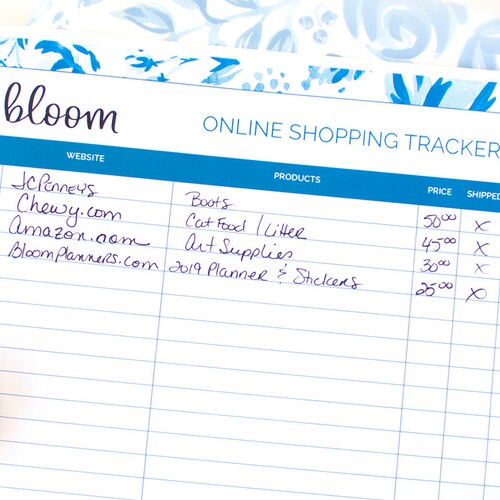 bloom
ONLINE SHOPPING TRACKER
WEBSITE PRODUCTS PRICE SHIPPED
JCPenneys Boots 50⁰⁰ X
Chewy.com Cat Food / Litter 45⁰⁰ X
Amazon.com Art Supplies 30⁰⁰ X
BloomPlanners.com 2019 Planner & Stickers 25⁰⁰ X